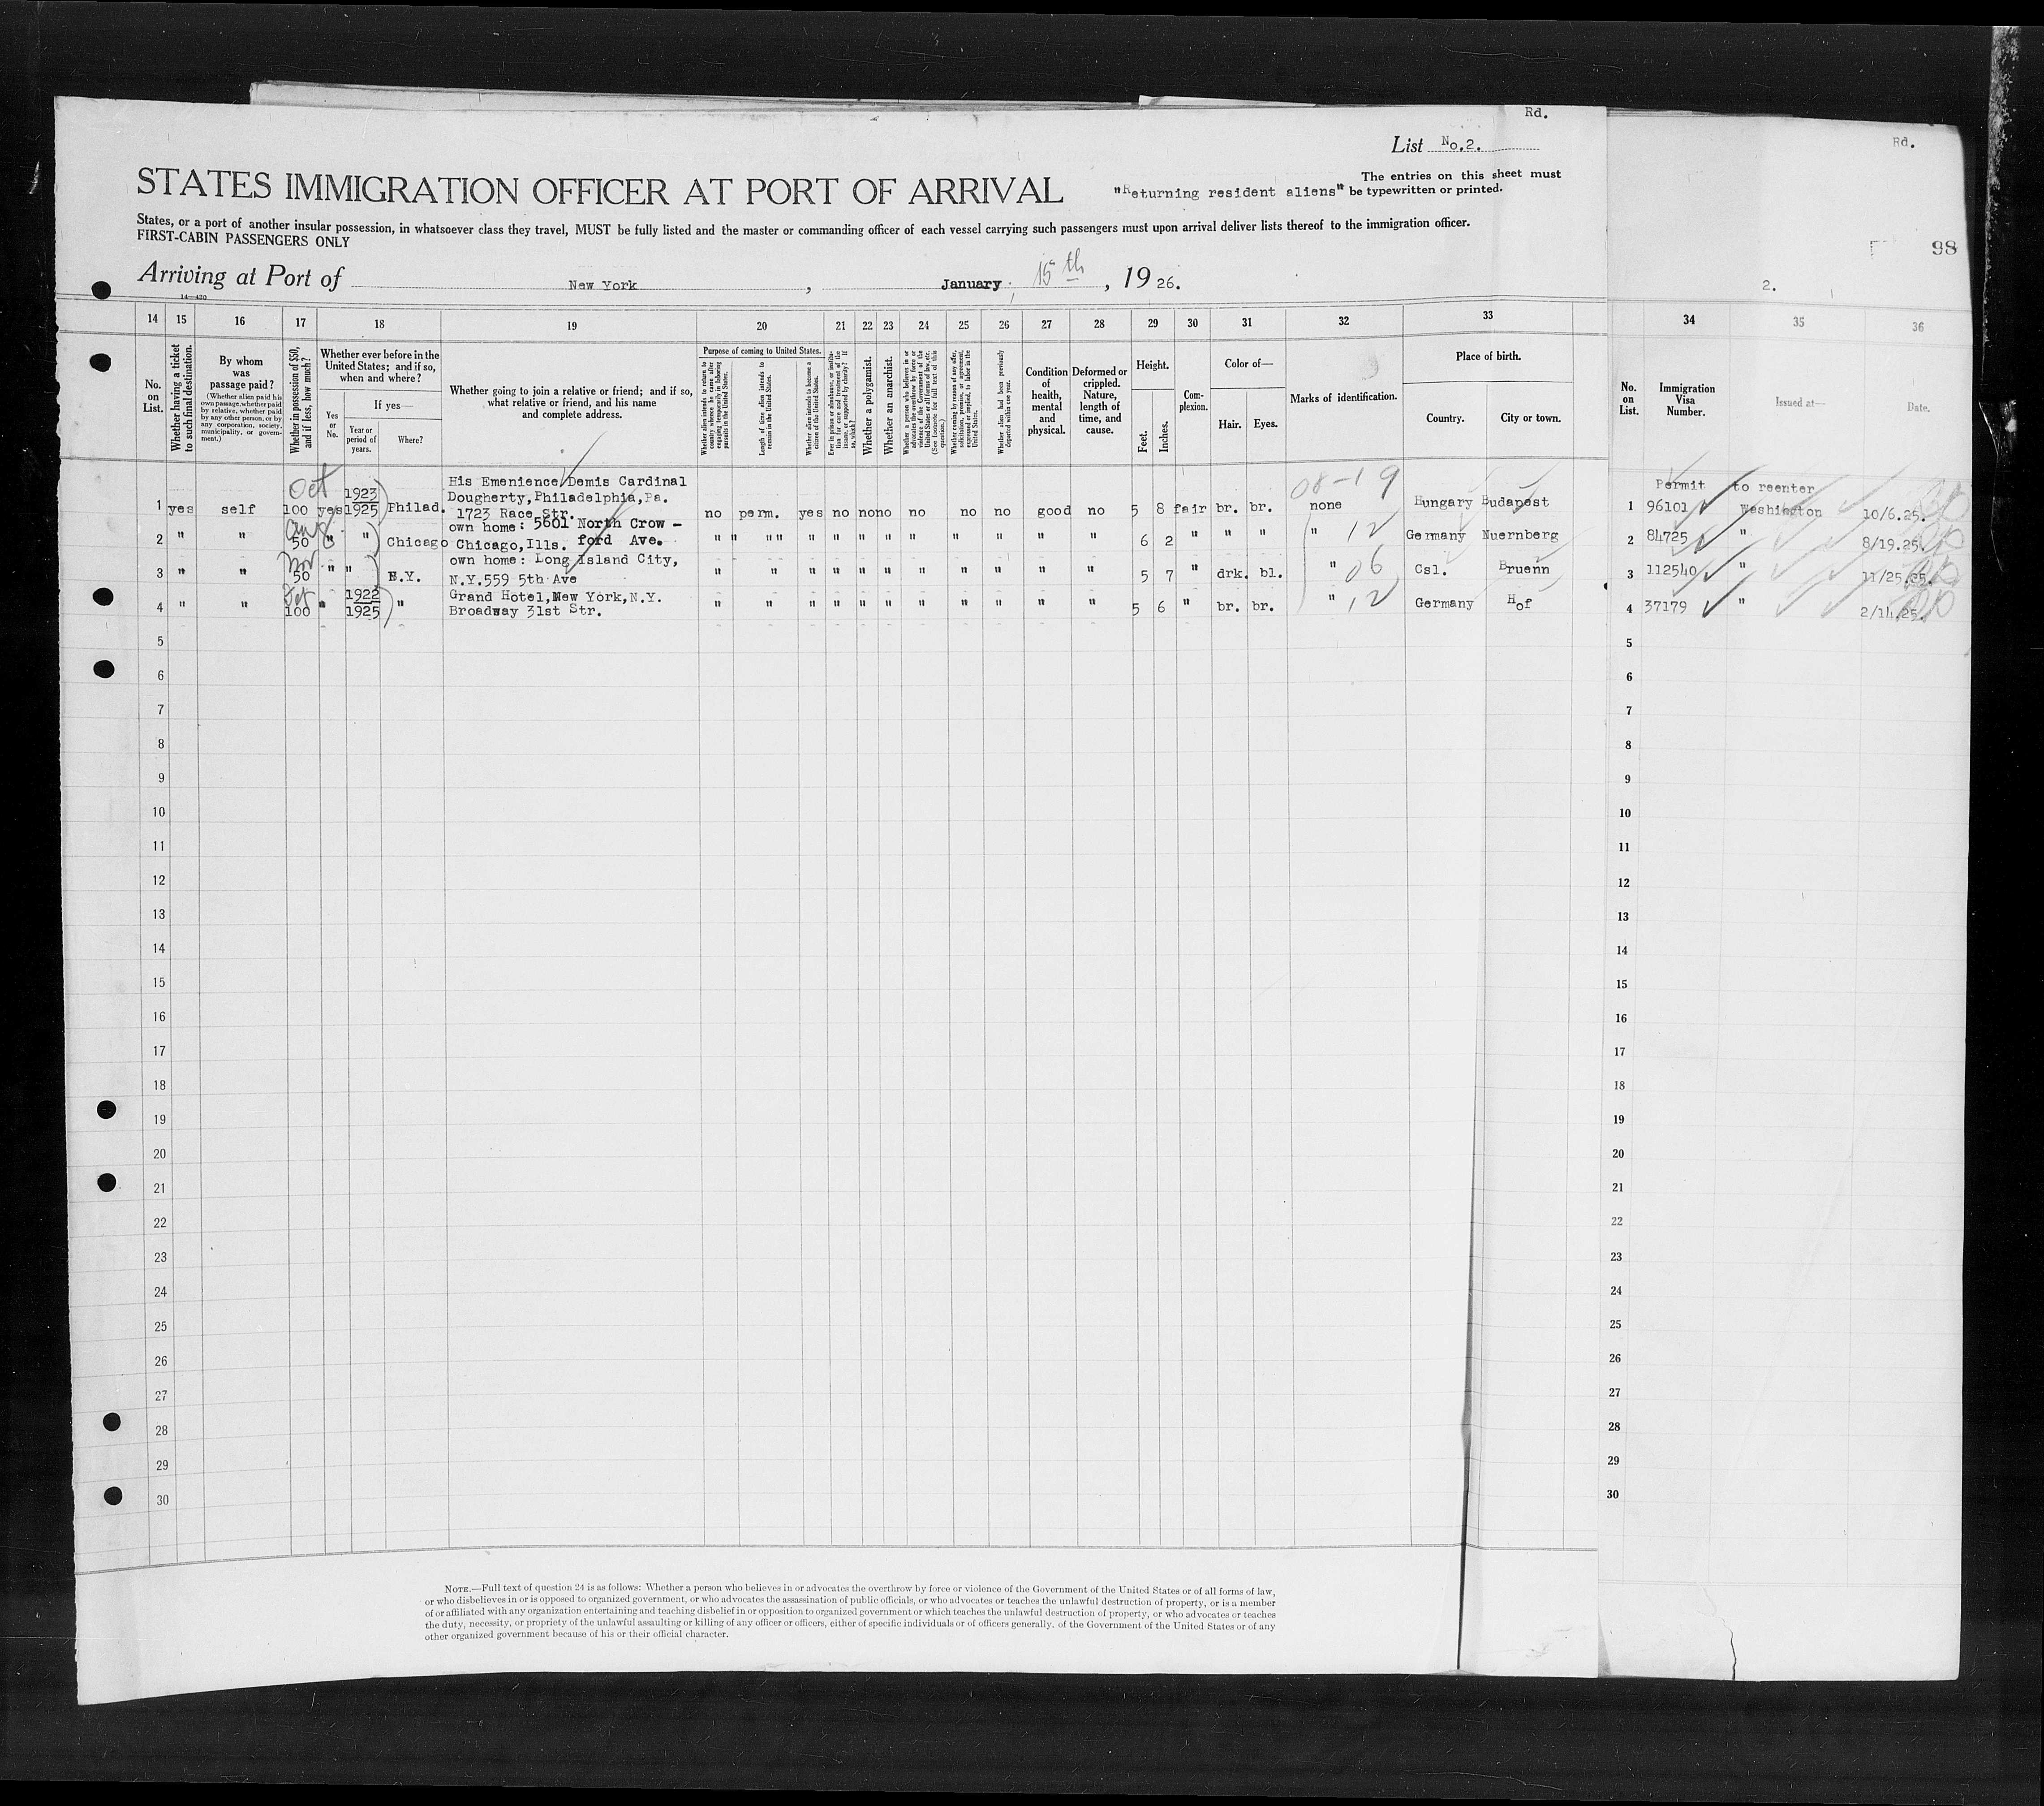 Rd.
List No.2.
Rd.
STATES IMMIGRATION OFFICER AT PORT OF ARRIVAL
"Returning resident aliens"
The entries on this sheet must
be typewritten or printed.
States, or a port of another insular possession, in whatsoever class they travel, MUST be fully listed and the master or commanding officer of each vessel carrying such passengers must upon arrival deliver lists thereof to the immigration officer.
FIRST-CABIN PASSENGERS ONLY
98
Arriving at Port of New York, January 15th, 1926.
2.
14—430
14 15 16 17 18 19 20 21 22 23 24 25 26 27 28 29 30 31 32 33 34 35 36
No. on List.
Whether having a ticket to such final destination.
By whom was passage paid?
(Whether alien paid his own passage, whether paid by relative, whether paid by any other person, or by any corporation, society, municipality, or government.)
Whether in possession of $50, and if less, how much?
Whether ever before in the United States; and if so, when and where?
Yes or No.
If yes—
Year or period of years.
Where?
Whether going to join a relative or friend; and if so, what relative or friend, and his name and complete address.
Purpose of coming to United States.
Whether alien intends to return to country whence he came after engaging temporarily in laboring pursuits in the United States.
Length of time alien intends to remain in the United States.
Whether alien intends to become a citizen of the United States.
Ever in prison or almshouse, or institution for care and treatment of the insane, or supported by charity? If so, which?
Whether a polygamist.
Whether an anarchist.
Whether a person who believes in or advocates the overthrow by force or violence of the Government of the United States or of all forms of law, etc. (See footnote for full text of this question.)
Whether coming by reason of any offer, solicitation, promise, or agreement, expressed or implied, to labor in the United States.
Whether alien had been previously deported within one year.
Condition of health, mental and physical.
Deformed or crippled. Nature, length of time, and cause.
Height.
Feet.
Inches.
Complexion.
Color of—
Hair.
Eyes.
Marks of identification.
Place of birth.
Country.
City or town.
No. on List.
Immigration Visa Number.
Issued at—
Date.
Oct 1923 His Emenience Demis Cardinal 08-19 Permit to reenter
Dougherty, Philadelphia, Pa.
1 yes self 100 yes 1925 Philad. 1723 Race Str. no perm. yes no no no no no no good no 5 8 fair br. br. none Hungary Budapest 1 96101 Washington 10/6.25.
own home: 5601 North Crow -
2 " " 50 " " Chicago Chicago, Ills. ford Ave. " " " " " " " " " " " " " 6 2 " " " " 12 Germany Nuernberg 2 84725 " 8/19.25.
Nov own home: Long Island City,
3 " " 50 " " N.Y. N.Y. 559 5th Ave " " " " " " " " " " " 5 7 " drk. bl. " 06 Csl. Bruenn 3 112540 " 11/25.25.
1922 Grand Hotel, New York, N.Y.
4 " " 100 " 1925 " Broadway 31st Str. " " " " " " " " " " " 5 6 " br. br. " 12 Germany Hof 4 37179 " 2/14.25.
5 5
6 6
7 7
8 8
9 9
10 10
11 11
12 12
13 13
14 14
15 15
16 16
17 17
18 18
19 19
20 20
21 21
22 22
23 23
24 24
25 25
26 26
27 27
28 28
29 29
30 30
NOTE.—Full text of question 24 is as follows: Whether a person who believes in or advocates the overthrow by force or violence of the Government of the United States or of all forms of law,
or who disbelieves in or is opposed to organized government, or who advocates the assassination of public officials, or who advocates or teaches the unlawful destruction of property, or is a member
of or affiliated with any organization entertaining and teaching disbelief in or opposition to organized government or which teaches the unlawful destruction of property, or who advocates or teaches
the duty, necessity, or propriety of the unlawful assaulting or killing of any officer or officers, either of specific individuals or of officers generally, of the Government of the United States or of any
other organized government because of his or their official character.